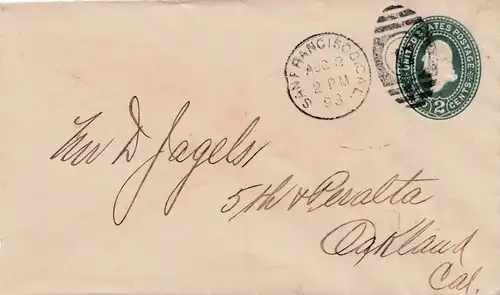 SAN FRANCISCO, CAL.
AUG 2
2 PM
93
UNITED STATES POSTAGE
2 CENTS
D Jagels
5th & Peralta
Oakland
Cal.